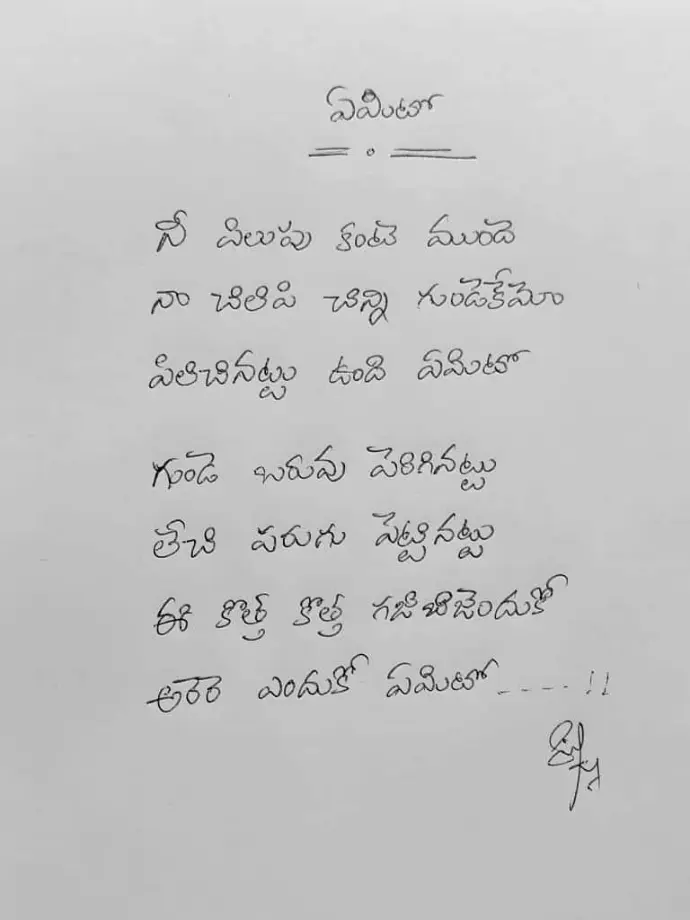 ఏమిటో
నీ పిలుపు కంటె ముందె
నా చిలిపి చిన్ని గుండెకేమో
పిలిచినట్టు ఉంది ఏమిటో
గుండె బరువు పెరిగినట్టు
లేచి పరుగు పెట్టినట్టు
ఈ కొత్త కొత్త గజిబిజెందుకో
అరెరె ఎందుకో ఏమిటో - - - - . !!